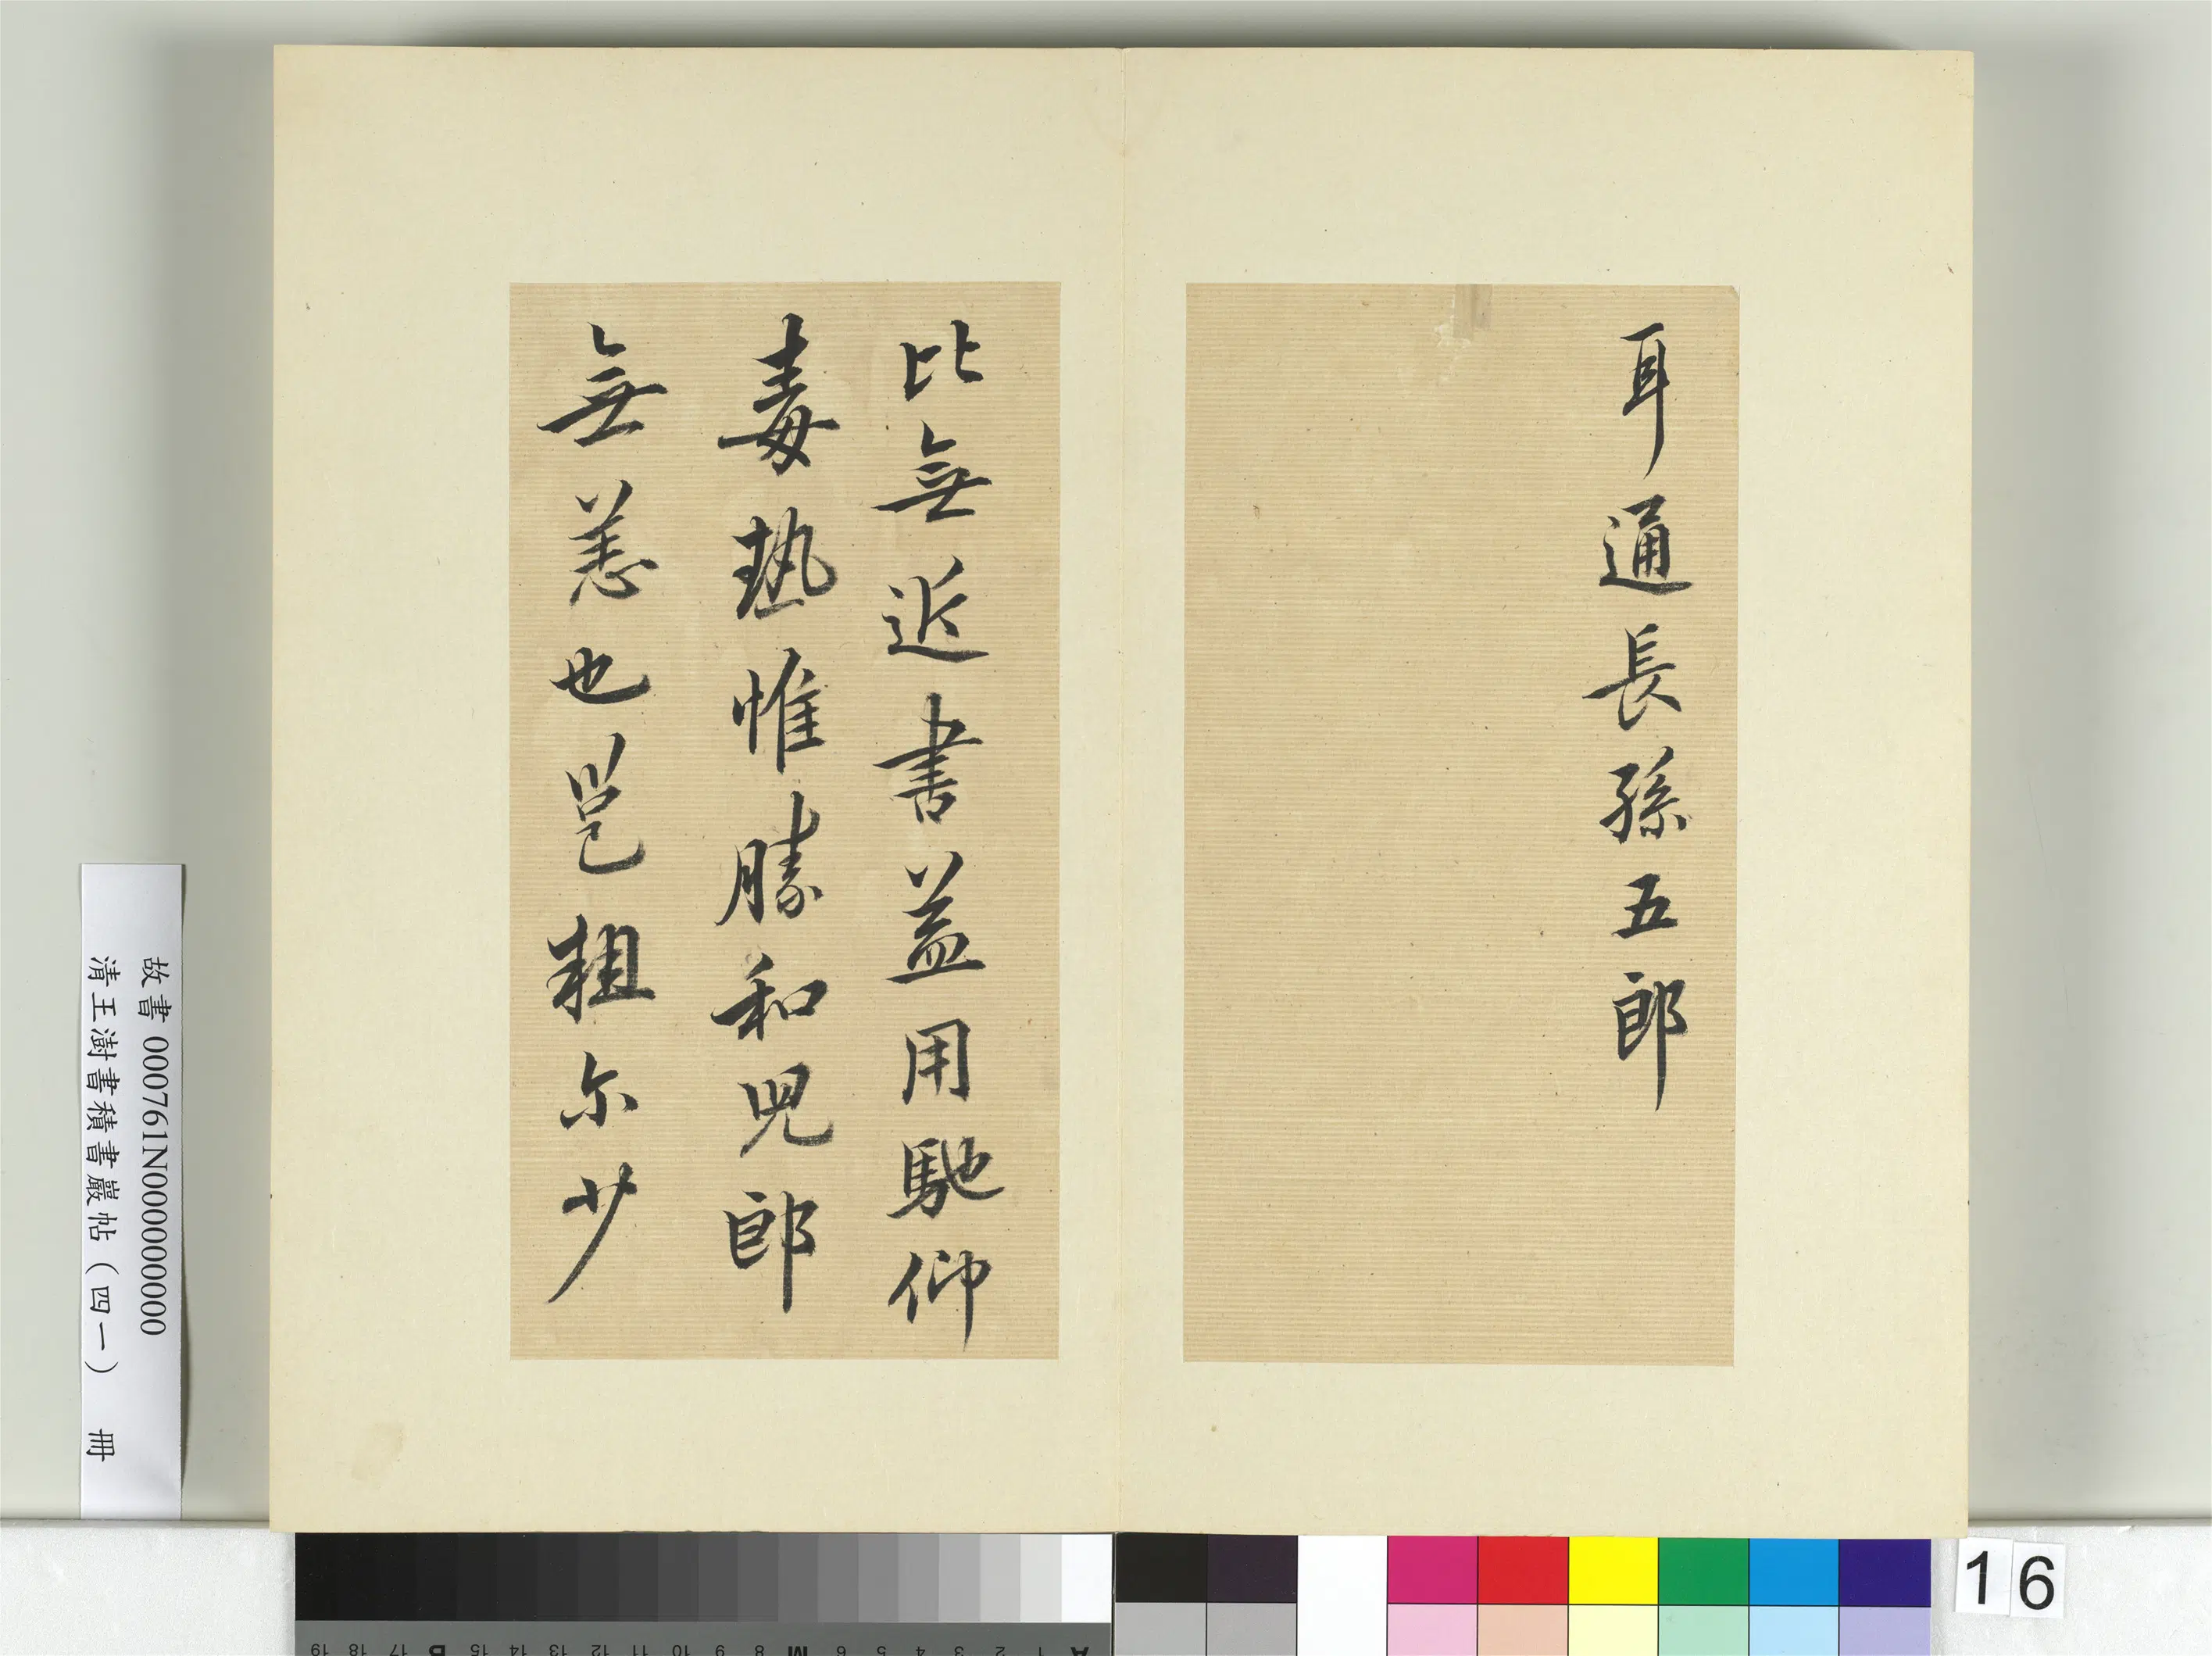 耳通長孫五郎
比無近書益用馳仰
毒熱惟勝和兒郎
無恙也邕粗尓少
故書 000761N000000000
清王澍書積書巖帖（四一） 冊
16
A 1 2 3 4 5 6 M 8 9 10 11 12 13 14 15 B 17 18 19